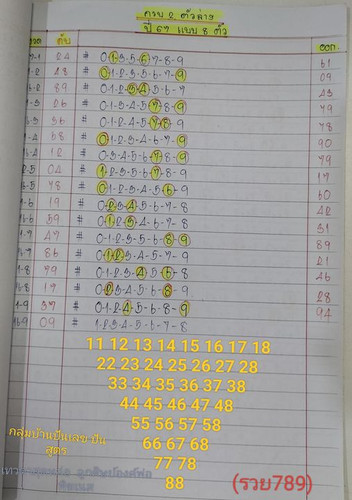 ครบ 2 ตัวล่าง
ปี 67 แบบ 8 ตัว
งวด ดับ ออก
24 # 0-1-3-5-6-7-8-9 61
48 # 0-1-2-3-5-6-7-9 09
89 # 0-1-2-3-4-5-6-7 43
26 # 0-1-3-4-5-7-8-9 79
36 # 0-1-2-4-5-7-8-9 78
68 # 0-1-2-3-4-6-7-9 90
12 # 0-3-4-5-6-7-8-9 79
04 # 1-2-3-5-6-7-8-9 17
78 # 0-1-2-3-4-5-6-9 60
19 # 0-2-3-4-5-6-7-8 42
59 # 0-1-2-3-4-6-7-8 31
47 # 0-1-2-3-5-6-8-9 89
86 # 0-1-2-3-4-5-7-9 21
79 # 0-1-2-3-4-5-6-8 46
17 # 0-2-3-4-5-6-8-9 28
1-9 37 # 0-1-2-4-5-6-8-9 94
16-9 09 # 1-2-3-4-5-6-7-8
11 12 13 14 15 16 17 18
22 23 24 25 26 27 28
33 34 35 36 37 38
44 45 46 47 48
55 56 57 58
66 67 68
77 78
88
กลุ่มบ้านปันเลข ปันสูตร
(รวย789)